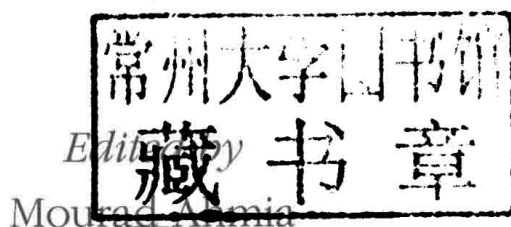 常州大学图书馆
藏书章
Edited by
Mourad Ahmia